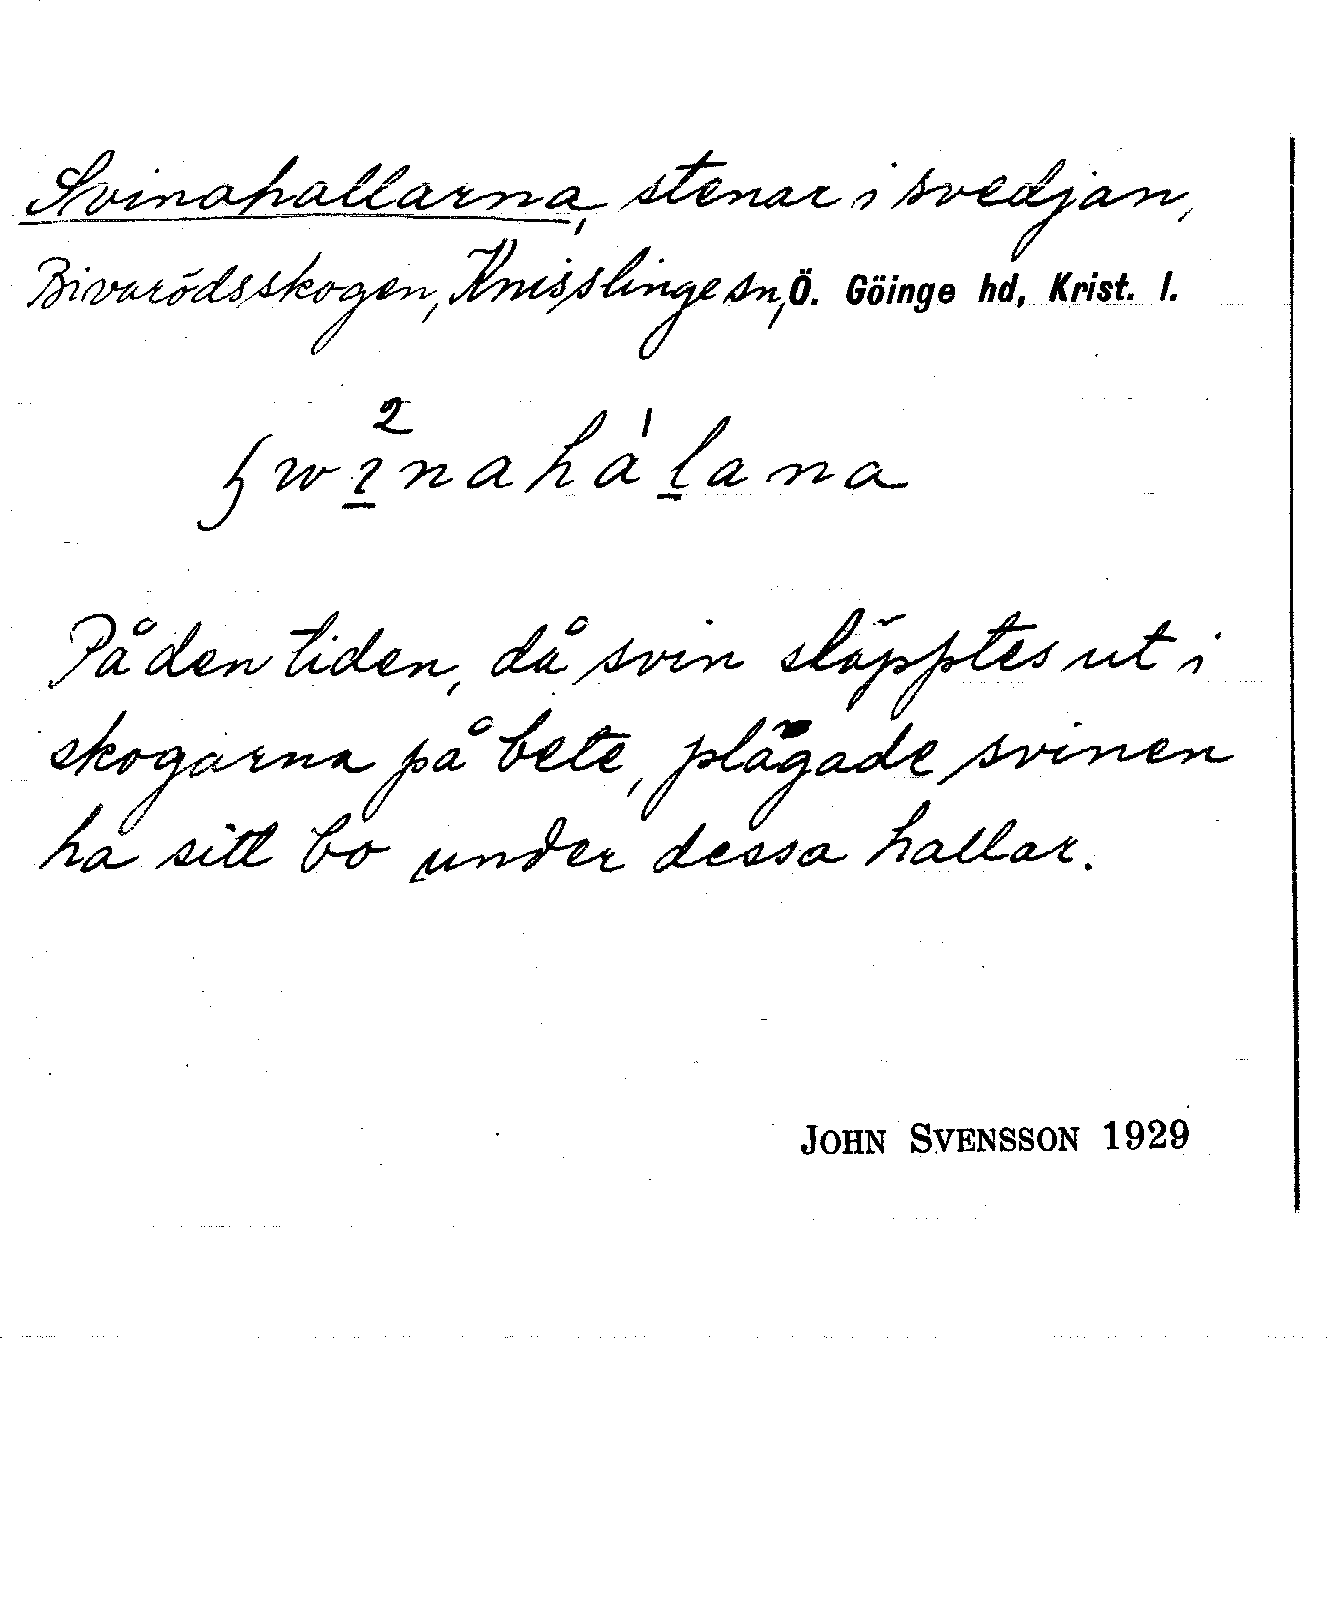 Svinahallarna, stenar i svedjan,
Bivarödsskogen, Knisslinge sn, Ö. Göinge hd, Krist. l.
ʂwi̲²nahàˈl̲ana
På den tiden, då svin släpptes ut i
skogarna på bete, plägade svinen
ha sitt bo under dessa hallar.
JOHN SVENSSON 1929